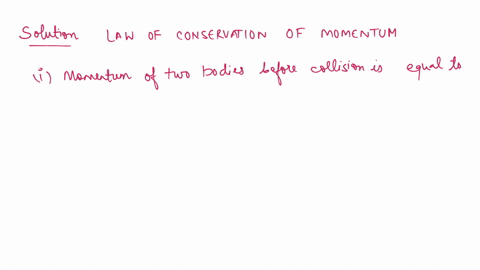 Solution LAW OF CONSERVATION OF MOMENTUM
(i) Momentum of two bodies before collision is equal to